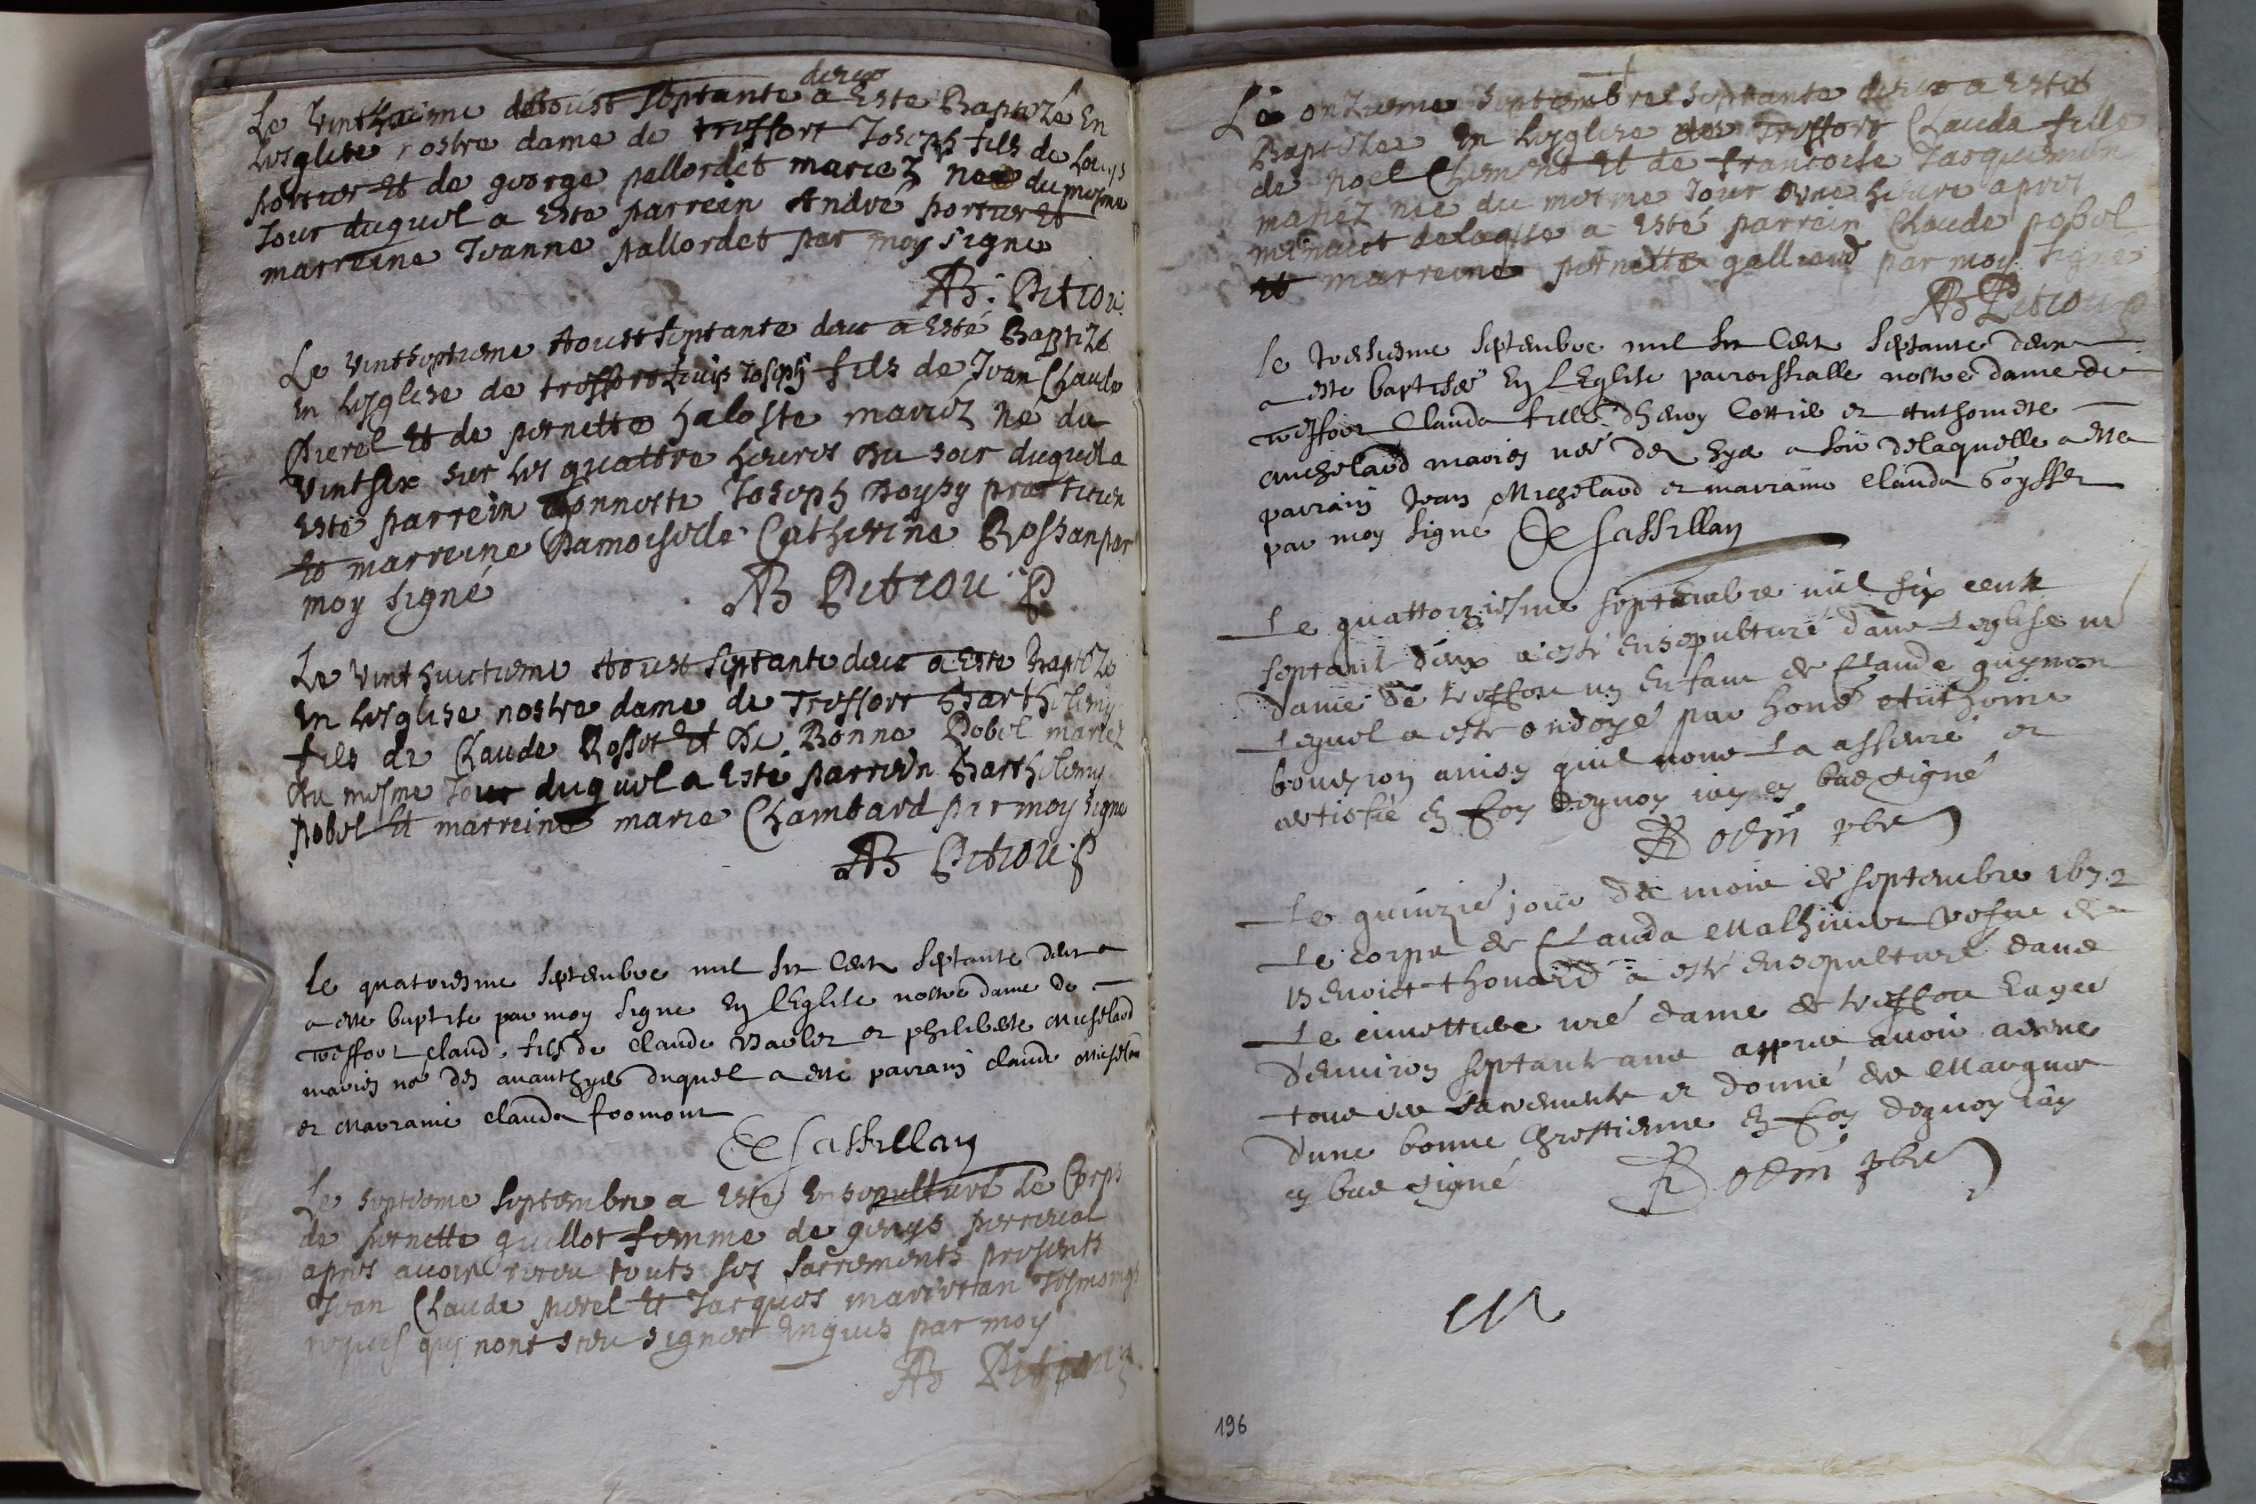 deux
Le Vint daoust septante a Este Baptizé En
Lesglise nostre dame de treffort Joseph fils de Louys
portier Et de george pallordet mariez né du mesme
Jour duquel a Este parrein André portier Et
marreine Jeanne pallordet par moy signé
AB. Petiou
Le Vintseptieme Aoust septante deux a Esté Baptizé
En Lesglise de treffort Louis Joseph fils de Jean Claude
Pierel Et de pernette haloste mariéz né du
Vintsix sur les quattre heures Du soir duquel a
Este parrein honneste Joseph Boysy praticien
Et marreine Damoiselle Catherine Rossan par
moy signé
AB Petiou P
Le Vint huictieme Aoust septante deux a Este Baptizé
En Lesglise nostre dame de Treffort Barthelemy
fils de Claude Rosset Et De Bonne Pobel mariez
Du mesme Jour duquel a Este parrein Barthelemy
Pobel Et marreine marie Chambard par moy signé
AB Petiou P
Le quatriesme septembre mil six Cent septante deux
a este baptise par moy signe En lEglise nostre dame de
treffort claud fils de claude et philiberte Michelard
mariez né des duquel a esté parrain claude
et Marraine clauda fromont
De Sassillan
Le septieme septembre a Este Ensepulturé Le Corps
de pernette guillot femme de genys perceval
apres avoir receu touts ses sacrements presents
Jean Claude pierel Et Jacques tesmoings
requis qui nont sceu signer Enquis par moy
AB Petiou
Le onzieme septembre septante deux a Estée
Baptizée En Lesglise de Treffort Clauda fille
de noel Clement Et de francoise Jacquemin
mariéz née du mesme Jour Une heure apres
minuict de laqlle a Esté parrein Claude pobel
Et marreine pernette galliand par moy signé
AB Petiou P
le treisiesme septembre mil six Cent septante deux
a este baptisée En LEglise parroissialle nostre dame de
treffort Clauda fille dhenry Cottin et Anthoinete
michelard mariez née de hyer a soir delaquelle a este
parrain Jean Michelard et marraine clauda
par moy signé De Sassillan
Le quattorziesme septembre mil six cent
septant deux a esté ensepulturé dans Leglise nre
dame de treffort un Enfant de Claude guynon
Lequel a esté ondoyé par honé Anthoine
quil nous La asseuré et
attesté En foy dequoy iay cy bas signé
R odin pbre
Le quinzie jour du mois de septembre 1672
Le corps de Clauda Mathieu vefue de
Benoict thouard a esté ensepulturé dans
Le cimettiere nre dame de treffort Eagee
denviron septant ans appres avoir
tous les sacrements et donné des Marques
dune bonne Chrestienne En foy dequoy iay
cy bas signé R odin pbre
196